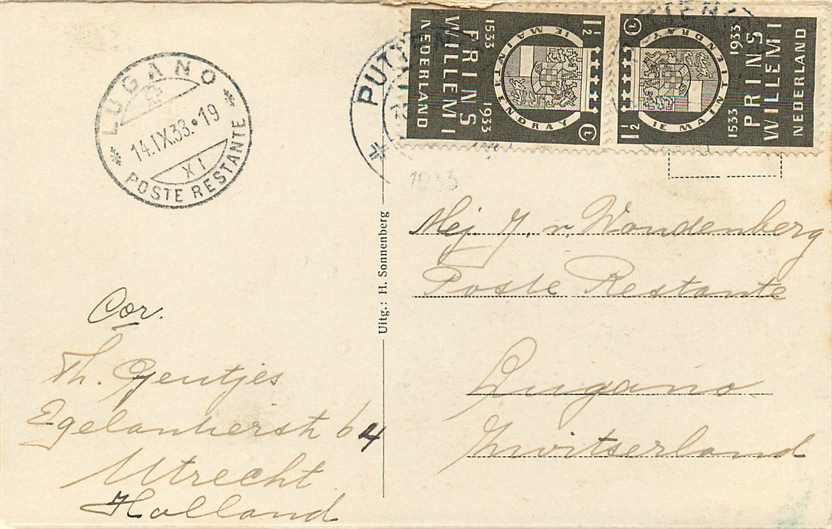 LUGANO
14.IX.33.•19
XI
POSTE RESTANTE
PUTTEN
NEDERLAND
PRINS
WILLEM I
1533 1933
JE MAINTIENDRAY
1½ ct
NEDERLAND
PRINS
WILLEM I
1533 1933
JE MAINTIENDRAY
1½ ct
1933
Uitg.: H. Sonnenberg
Mej. J. v. Woudenberg
Poste Restante
Lugano
Zwitserland
Cor.
Th. Gentjes
Egelantierstr 64
Utrecht
Holland